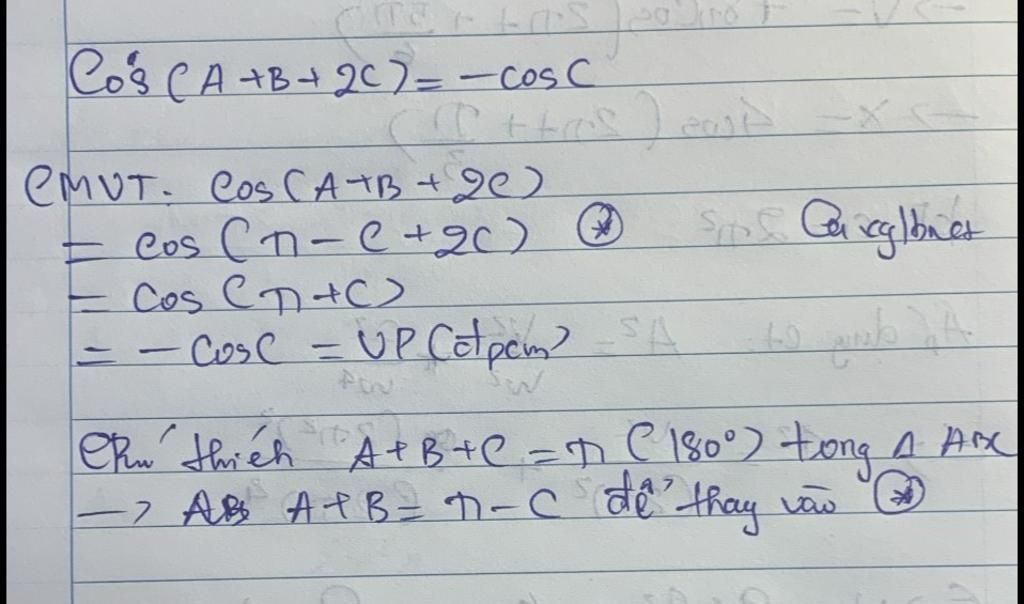 Cos (A+B+2C) = -cosC
CMVT. Cos(A+B+2C)
= cos (π - C + 2C) ⊛
= cos (π+C)
= - cosC = VP (đpcm)
Chú thích A+B+C = π (180°) trong Δ ABC
→ A+B = π - C để thay vào ⊛